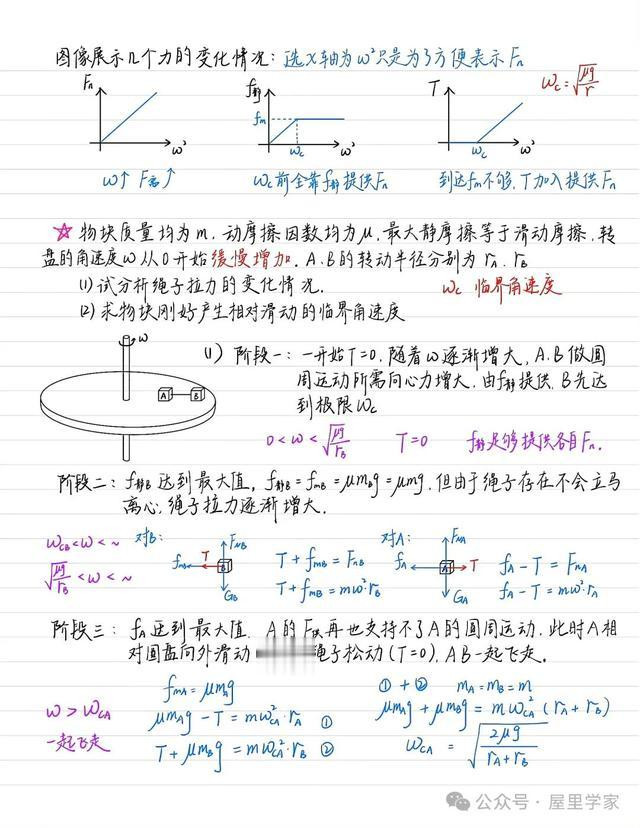 图像展示几个力的变化情况：选x轴为ω²只是为了方便表示Fn
Fn ω²
f静 fm ωc ω²
T ωc ω²
ωc=√(μg/r)
ω↑ F需↑
ωc前全靠f静提供Fn
到达fm不够，T加入提供Fn
☆ 物块质量均为m，动摩擦因数均为μ，最大静摩擦等于滑动摩擦，转
盘的角速度ω从0开始缓慢增加，A、B的转动半径分别为rA、rB
(1)试分析绳子拉力的变化情况.
ωc 临界角速度
(2)求物块刚好产生相对滑动的临界角速度
ω
A B
(1) 阶段一：一开始T=0，随着ω逐渐增大，A、B做圆
周运动所需向心力增大，由f静提供，B先达
到极限ωc
0<ω<√(μg/rB) T=0 f静足够提供各自Fn.
阶段二：f静B达到最大值，f静B=fmB=μmBg=μmg，但由于绳子存在不会立马
离心，绳子拉力逐渐增大.
ωCB<ω<~
√(μg/rB)<ω<~
对B：
FNB
fmB T B
GB
T+fmB=FnB
T+fmB=mω²·rB
对A：
FNA
fA A T
GA
fA-T=FnA
fA-T=mω²·rA
阶段三：fA达到最大值，A的F供再也支持不了A的圆周运动，此时A相
对圆盘向外滑动 绳子松动(T=0)，AB一起飞走.
ω>ωCA
一起飞走
fmA=μmAg
μmAg-T=mωCA²·rA ①
T+μmBg=mωCA²·rB ②
①+② mA=mB=m
μmAg+μmBg=mωCA²(rA+rB)
ωCA=√(2μg/(rA+rB))
公众号·屋里学家